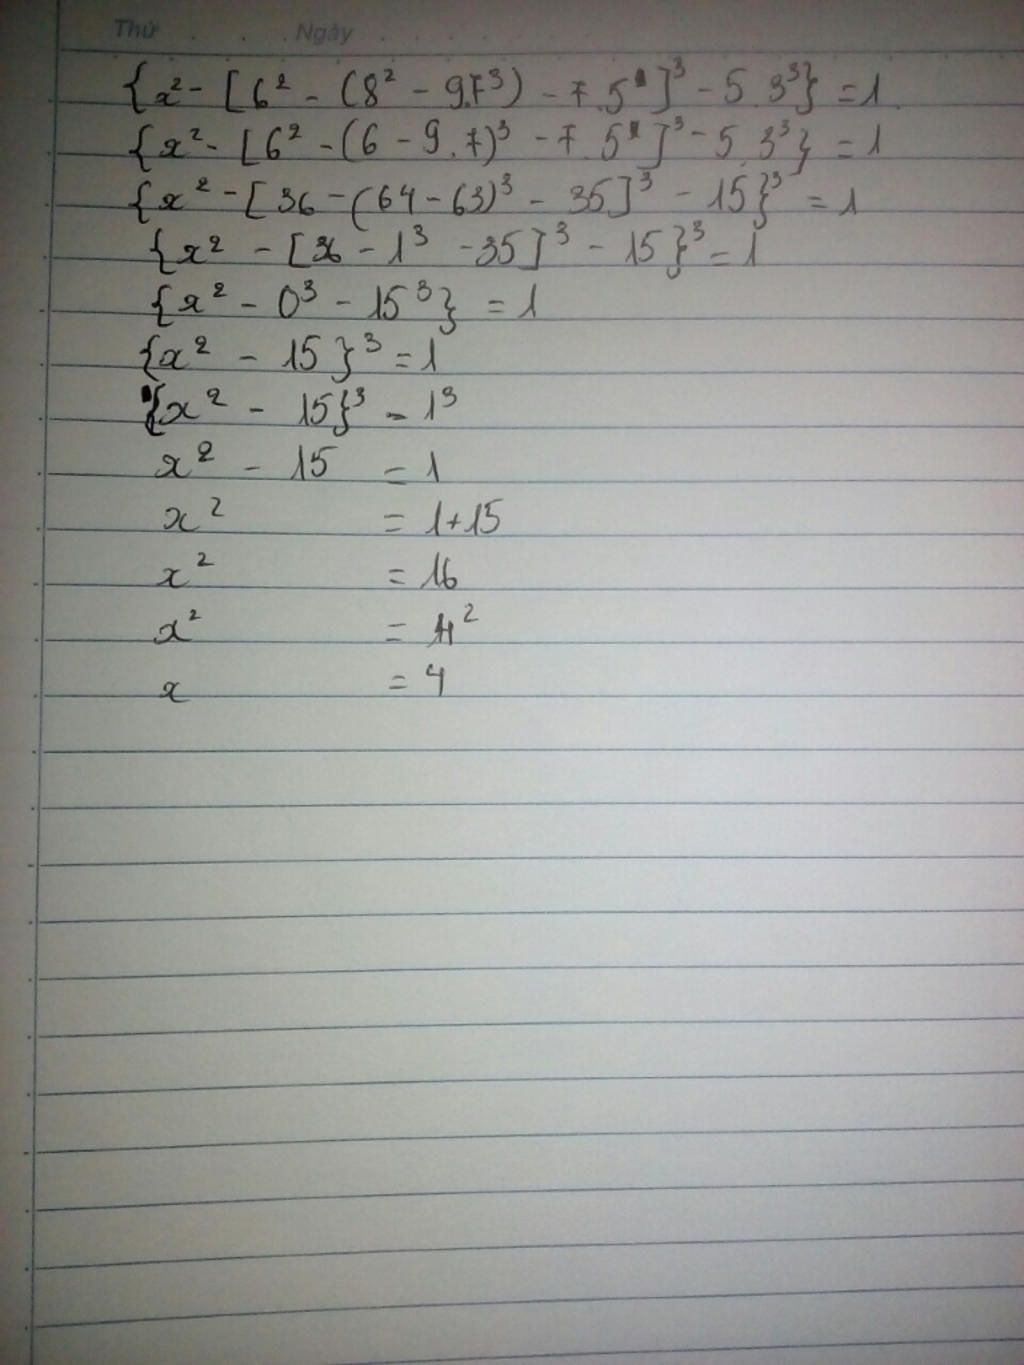 Thứ . . . Ngày . . . . .
{x² - [6² - (8² - 9.7³) - 7.5]³ - 5.3³} = 1.
{x² - [6² - (6 - 9.7)³ - 7.5]³ - 5.3³} = 1
{x² - [36 - (64 - 63)³ - 35]³ - 15}³ = 1
{x² - [36 - 1³ - 35]³ - 15}³ = 1
{x² - 0³ - 15³} = 1
{x² - 15}³ = 1
{x² - 15}³ = 1³
x² - 15 = 1
x² = 1+15
x² = 16
x² = 4²
x = 4